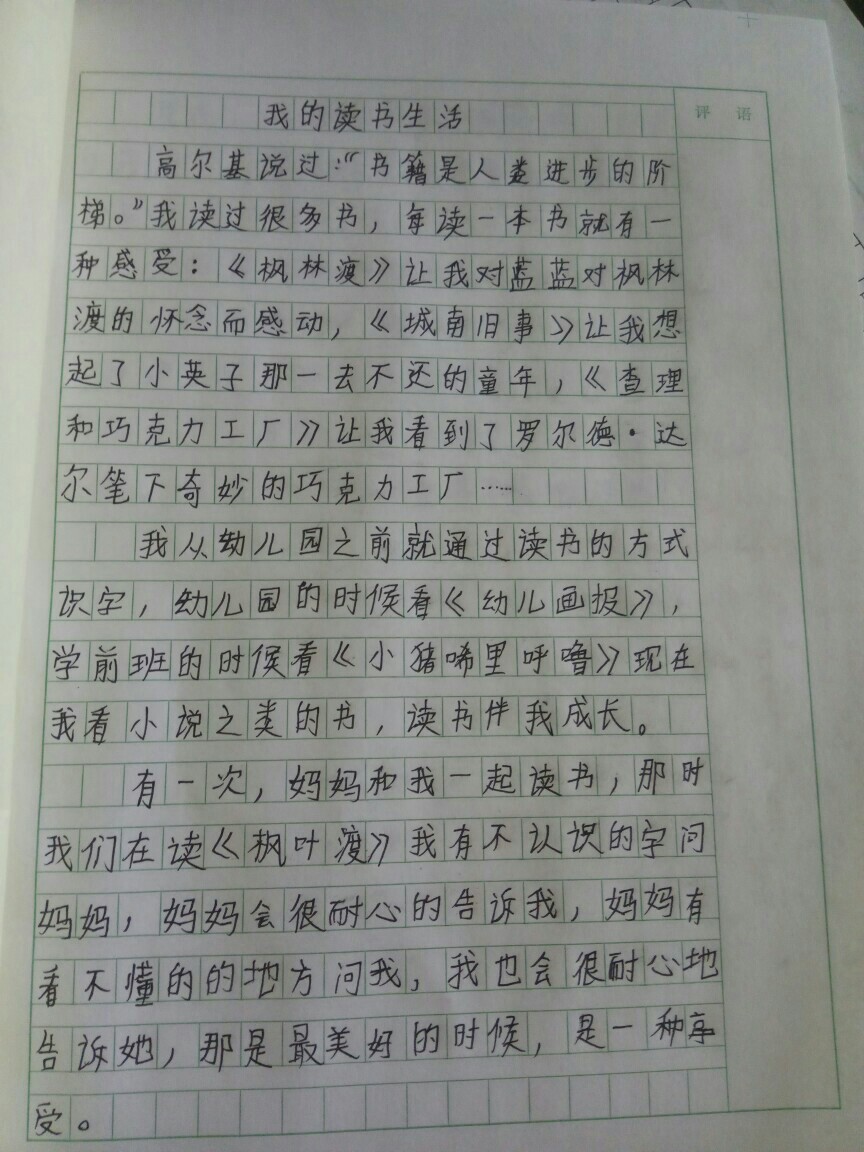 评 语
我的读书生活
高尔基说过:“书籍是人类进步的阶
梯。”我读过很多书，每读一本书就有一
种感受：《枫林渡》让我对蓝蓝对枫林
渡的怀念而感动，《城南旧事》让我想
起了小英子那一去不还的童年，《查理
和巧克力工厂》让我看到了罗尔德·达
尔笔下奇妙的巧克力工厂……
我从幼儿园之前就通过读书的方式
识字，幼儿园的时候看《幼儿画报》，
学前班的时候看《小猪唏里呼噜》现在
我看小说之类的书，读书伴我成长。
有一次，妈妈和我一起读书，那时
我们在读《枫叶渡》我有不认识的字问
妈妈，妈妈会很耐心的告诉我，妈妈有
看不懂的的地方问我，我也会很耐心地
告诉她，那是最美好的时候，是一种享
受。